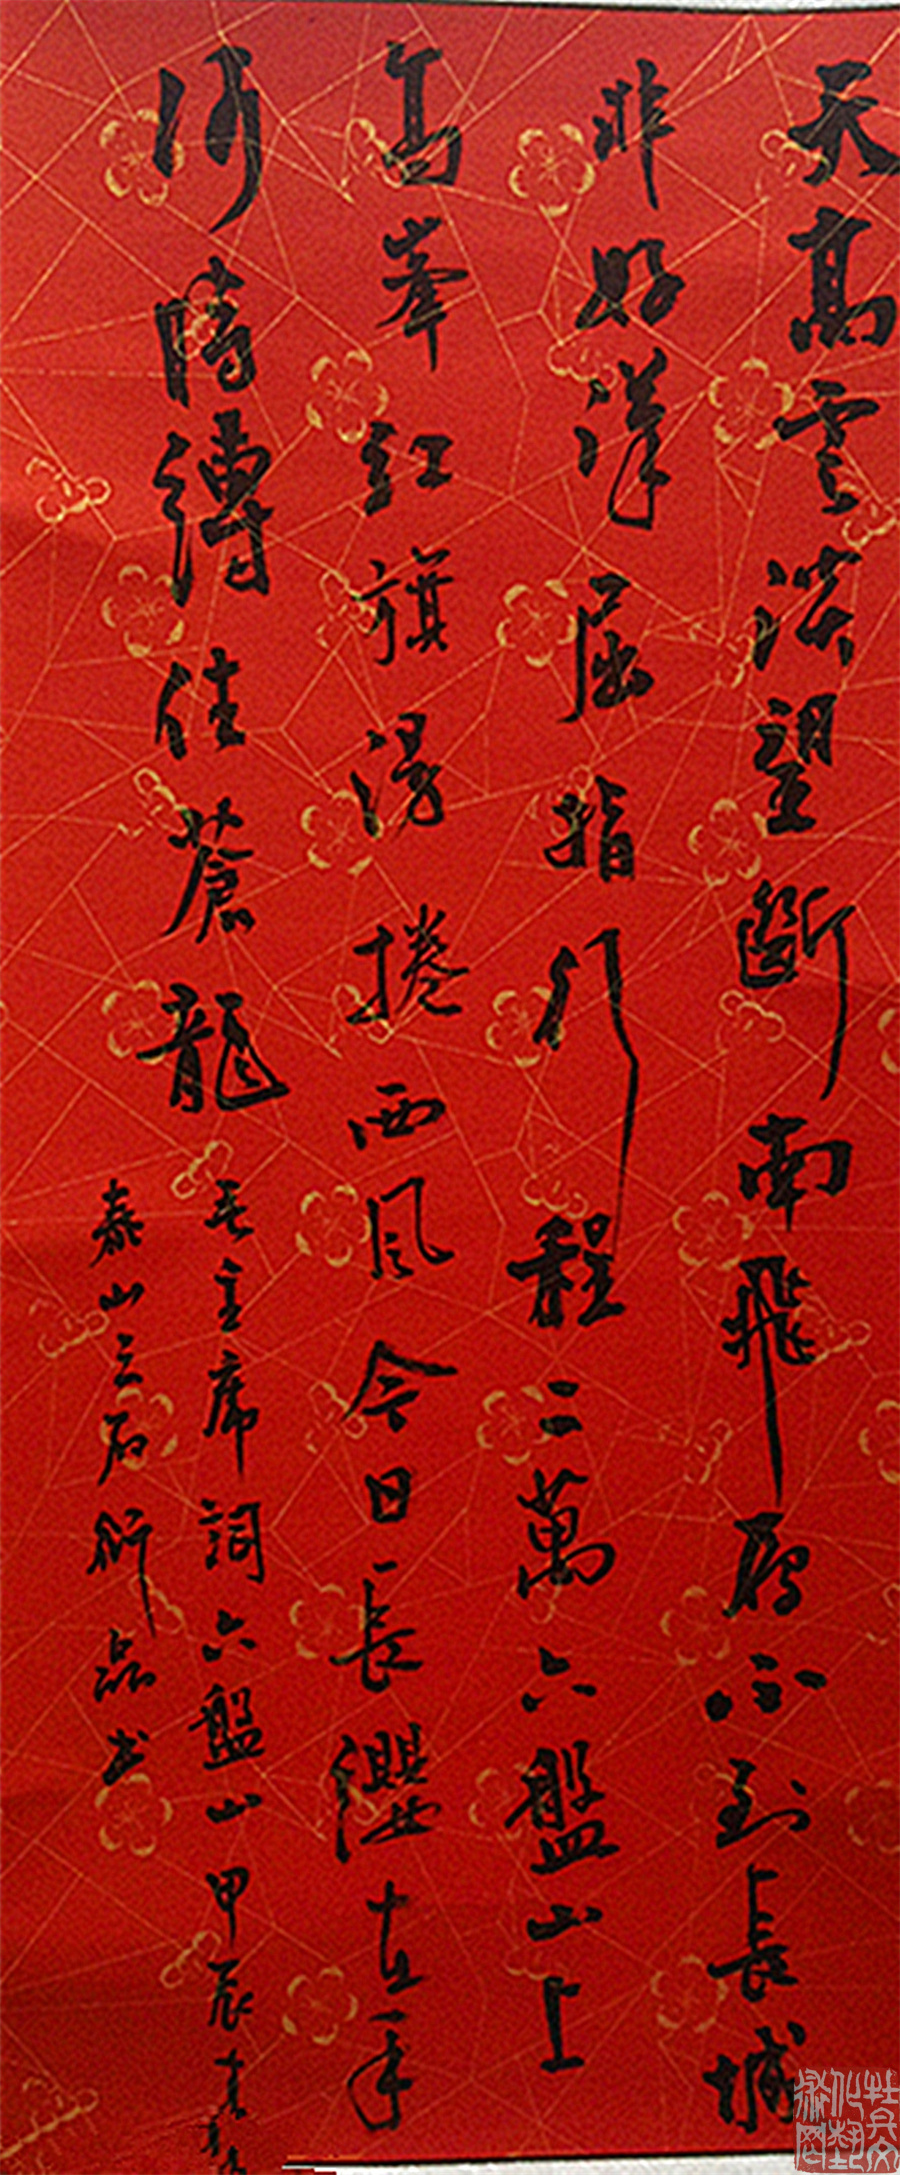 天高雲淡望斷南飛雁不到長城
非好漢屈指行程二萬六盤山上
高峯紅旗漫捲西風今日長纓在手
何時縛住蒼龍
毛主席詞六盤山甲辰
泰山三石衍磊書